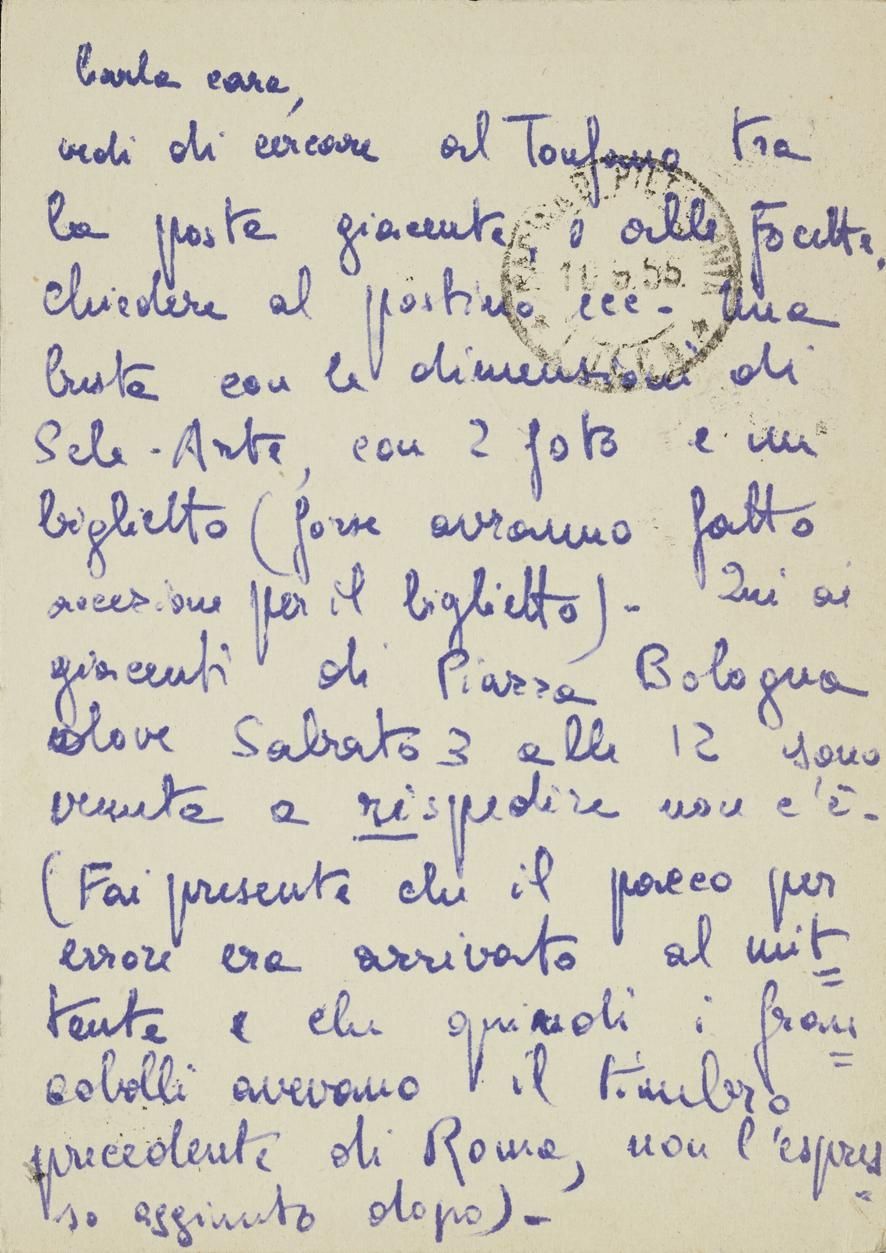 Carla cara,
vedi di cercare al Tonfano tra
la posta giacente, o alle Focette,
chiedere al postino ecc. una
busta con le dimensioni di
Sele-Arte, con 2 foto e un
biglietto (forse avranno fatto
accezione per il biglietto)- Qui ai
giacenti di Piazza Bologna
dove Sabato 3 alle 12 sono
venuta a rispedire non c'è-
(Fai presente che il pacco per
errore era arrivato al mit=
tente e che quindi i fran=
cobolli avevano il timbro
precedente di Roma, non l'espres=
so aggiunto dopo)-
PIETRASANTA
LUCCA